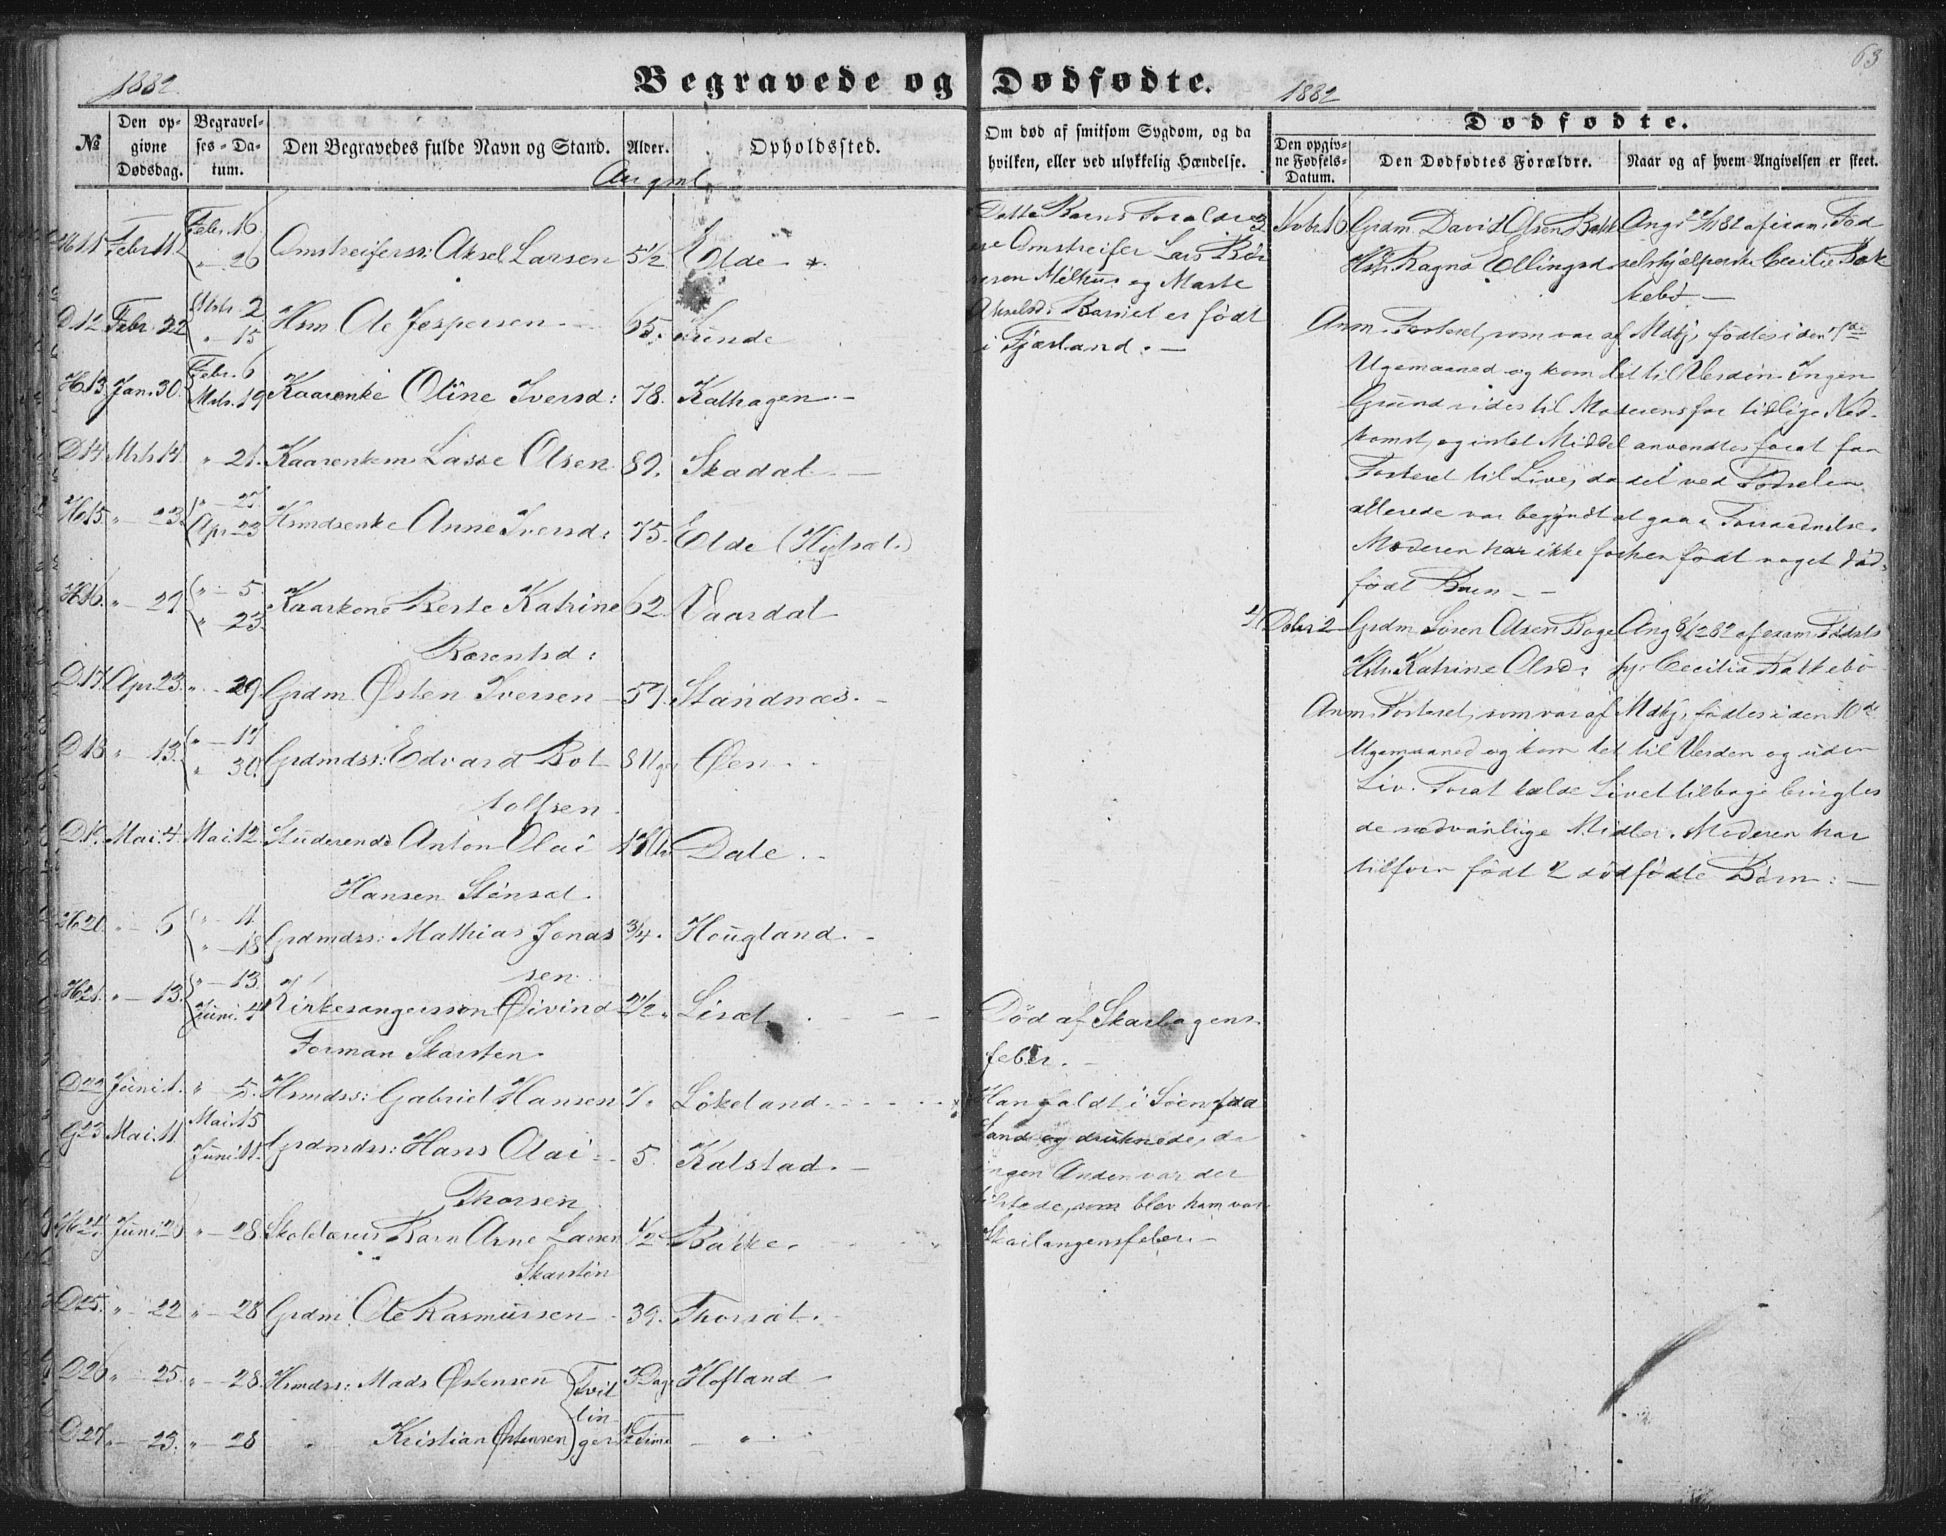 63
1882.
Begravede og Dødfødte.
1882
№
Den opgivne Dødsdag.
Begravelses-Datum.
Den Begravedes fulde Navn og Stand.
Alder.
Opholdssted.
Om død af smitsom Sygdom, og da hvilken, eller ved ulykkelig Hændelse.
Dødfødte.
Den opgivne Fødsels-Datum.
Den Dødfødtes Forældre.
Naar og af hvem Angivelsen er skeet.
H11 Febr. 11. Febr. 16 " 26 Omstreiferss: Aksel Larsen 5 1/2 Elde *
D12 Febr. 22 Mrts. 2 " 15 Hsm Ole Jespersen 65.
H13. Jan. 30. Febr. 6 Mrts. 19 Kaarenke Oline Iversd: 78. Kalhagen
D14 Mrts 14 " 21. Kaarenkem Lasse Olsen 89. Skadal
H15 " 23. Apr 23 Hsmdsenke Anne Iversd: 75. Elde
H16. " 29 " 5 " 23. Kaarkone Berte Katrine 62. Vaardal
Berentsd:
D17. Apr 23. " 29 Grdm Østen Iversen 59. Standnæs
D18 " 13. " 17 " 30. Grdmdss: Edvard Bot 8 Uger Øen
tolfsen
Mai. 4 Mai. 12. Studerende Anton Olai Dale
Hansen Stensæt.
" 6 " 11 " 18 Grdmdss: Mathias Jonas 3/4. Hougland
sen
H21. " 13. " 13. Juni. 4 Kirkesangersson Øivind 2 1/2. Lisæt
Forman Skarsten.
D22 Juni. 1. " 5. Hsmdss: Gabriel Hansen 7. Løkeland
Mai. 11. Mai. 15 Juni. 11. Grdmdss: Hans Olai 5. Kalstad
Thorsen
Juni 20 " 28. Skolelærers Barn Arne Larsen 1/2 Bakke.
Skarsten
D25. " 22 " 28 Grdm. Ole Rasmussen 39. Thorsæt.
D26 " 25. " 28. Hsmdss: Mads Østensen Tvil Dage Hofland
lin
D27 " 23. " 28 " Kristian Østensen ger 1/2 Time "
Dette Barns Forældre
ere Omstreifer Lars
og Marte
Akselsd: Barnet er født
i Fjærland.
Død af Skarlagens
feber.
Han faldt i Søen fra
Land og druknede, da
ingen Anden var der
tilstede, som blev ham var
Skarlagensfeber.
3 Novbr 16 Grdm. David Olsen Bakk Ang. 22/11 82 af exam. Fød
Hstr. Ragna Ellingsd. selshjælperske Cecilie Bak
kebø
Anm. Fosteret, som var af Mdkj. fødtes i den 7de
Ugemaaned og kom let til Verden. Ingen
Grund vides til Moderens for tidlige Ned-
komst, og intet Middel anvendtes forat faa
Fosteret til Live, da det ved Fødselen
allerede var begyndt at gaa i Forraadnelse.
Moderen har ikke forhen født noget død-
født Barn
4 Dcbr 2 Grdm Søren Olsen Ang 8/12 82 af exam. Fødsels
Hstr Katrine Olsd: hj. Cecilia Bakkebø
Anm. Fosteret, som var af Mdkj, fødtes i den 10de
Ugemaaned og kom let til Verden og uden
Liv. Forat kalde Livet tilbage brugtes
de sædvanlige Midler. Moderen har
tilforn født 2 dødfødte Børn: